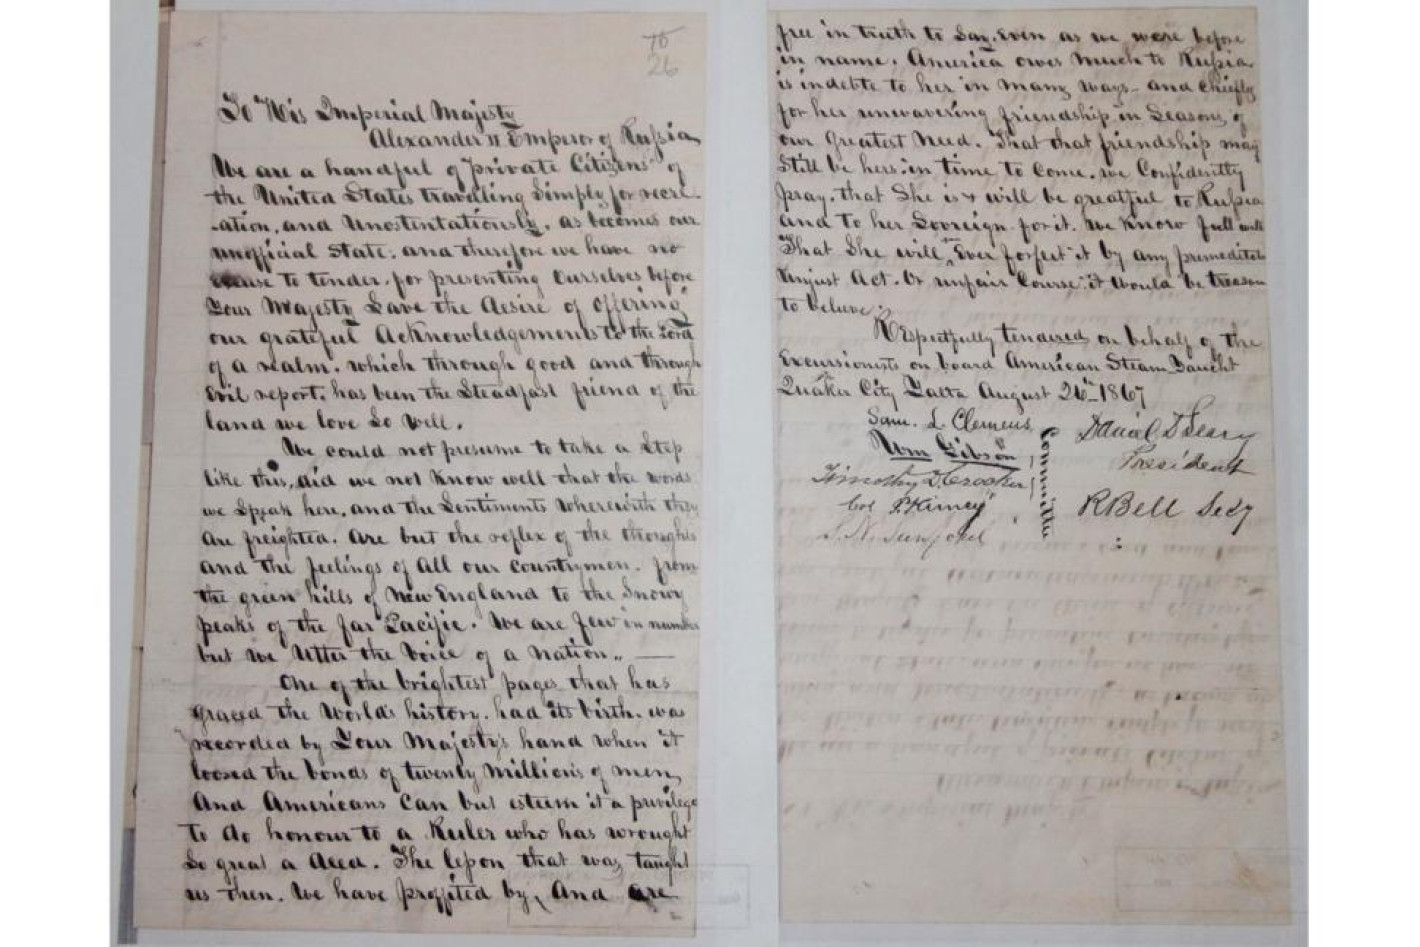 76
26
To His Imperial Majesty
Alexander II Emperor of Russia
We are a handful of "private Citizens" of
the United States travelling Simply for recre
-ation, and Unostentatiously, as becomes our
unofficial State; and therefore we have no
excuse to tender, for presenting Ourselves before
Your Majesty Save the desire of offering
our grateful Acknowledgements to the Lord
of a realm, which through good and through
Evil report, has been the Steadfast friend of the
land we love So well.
We could not presume to take a Step
like this, did we not Know well that the words
we Speak here, and the Sentiments wherewith they
are freighted, are but the reflex of the thoughts
and the feelings of all our countrymen, from
the green hills of New England to the Snowy
peaks of the far Pacific. We are few in number
but we utter the voice of a nation. —
One of the brightest pages that has
graced the World's history, had its birth, was
recorded by Your Majesty's hand when it
loosed the bonds of twenty Millions of men,
And Americans Can but esteem it a privilege
to do honour to a Ruler who has wrought
So great a deed. The lesson that was taught
us then, We have profited by, And are
free in truth to day, Even as we were before
in name. America owes Much to Russia
is indebte to her in many ways - and Chiefly
for her unwavering friendship in Seasons of
our Greatest Need. That that friendship may
Still be hers in time to come, we Confidently
pray, that She is & will be greatful to Russia
and to her Sovreign for it, We Know full well
That She will Ever forfeit it by any premeditated
Unjust Act, Or unfair Course, it would be treason
to believe.
Respectfully tendered on behalf of the
Excursionists on board American Steam Yaucht
Quaker City Yalta August 26th 1867
Sam. L. Clemens
Wm Gibson
Timothy D Crocker
Col P. Kinney
S. N. Sanford
Committee
Daniel D Leary
President
R Bell Secy